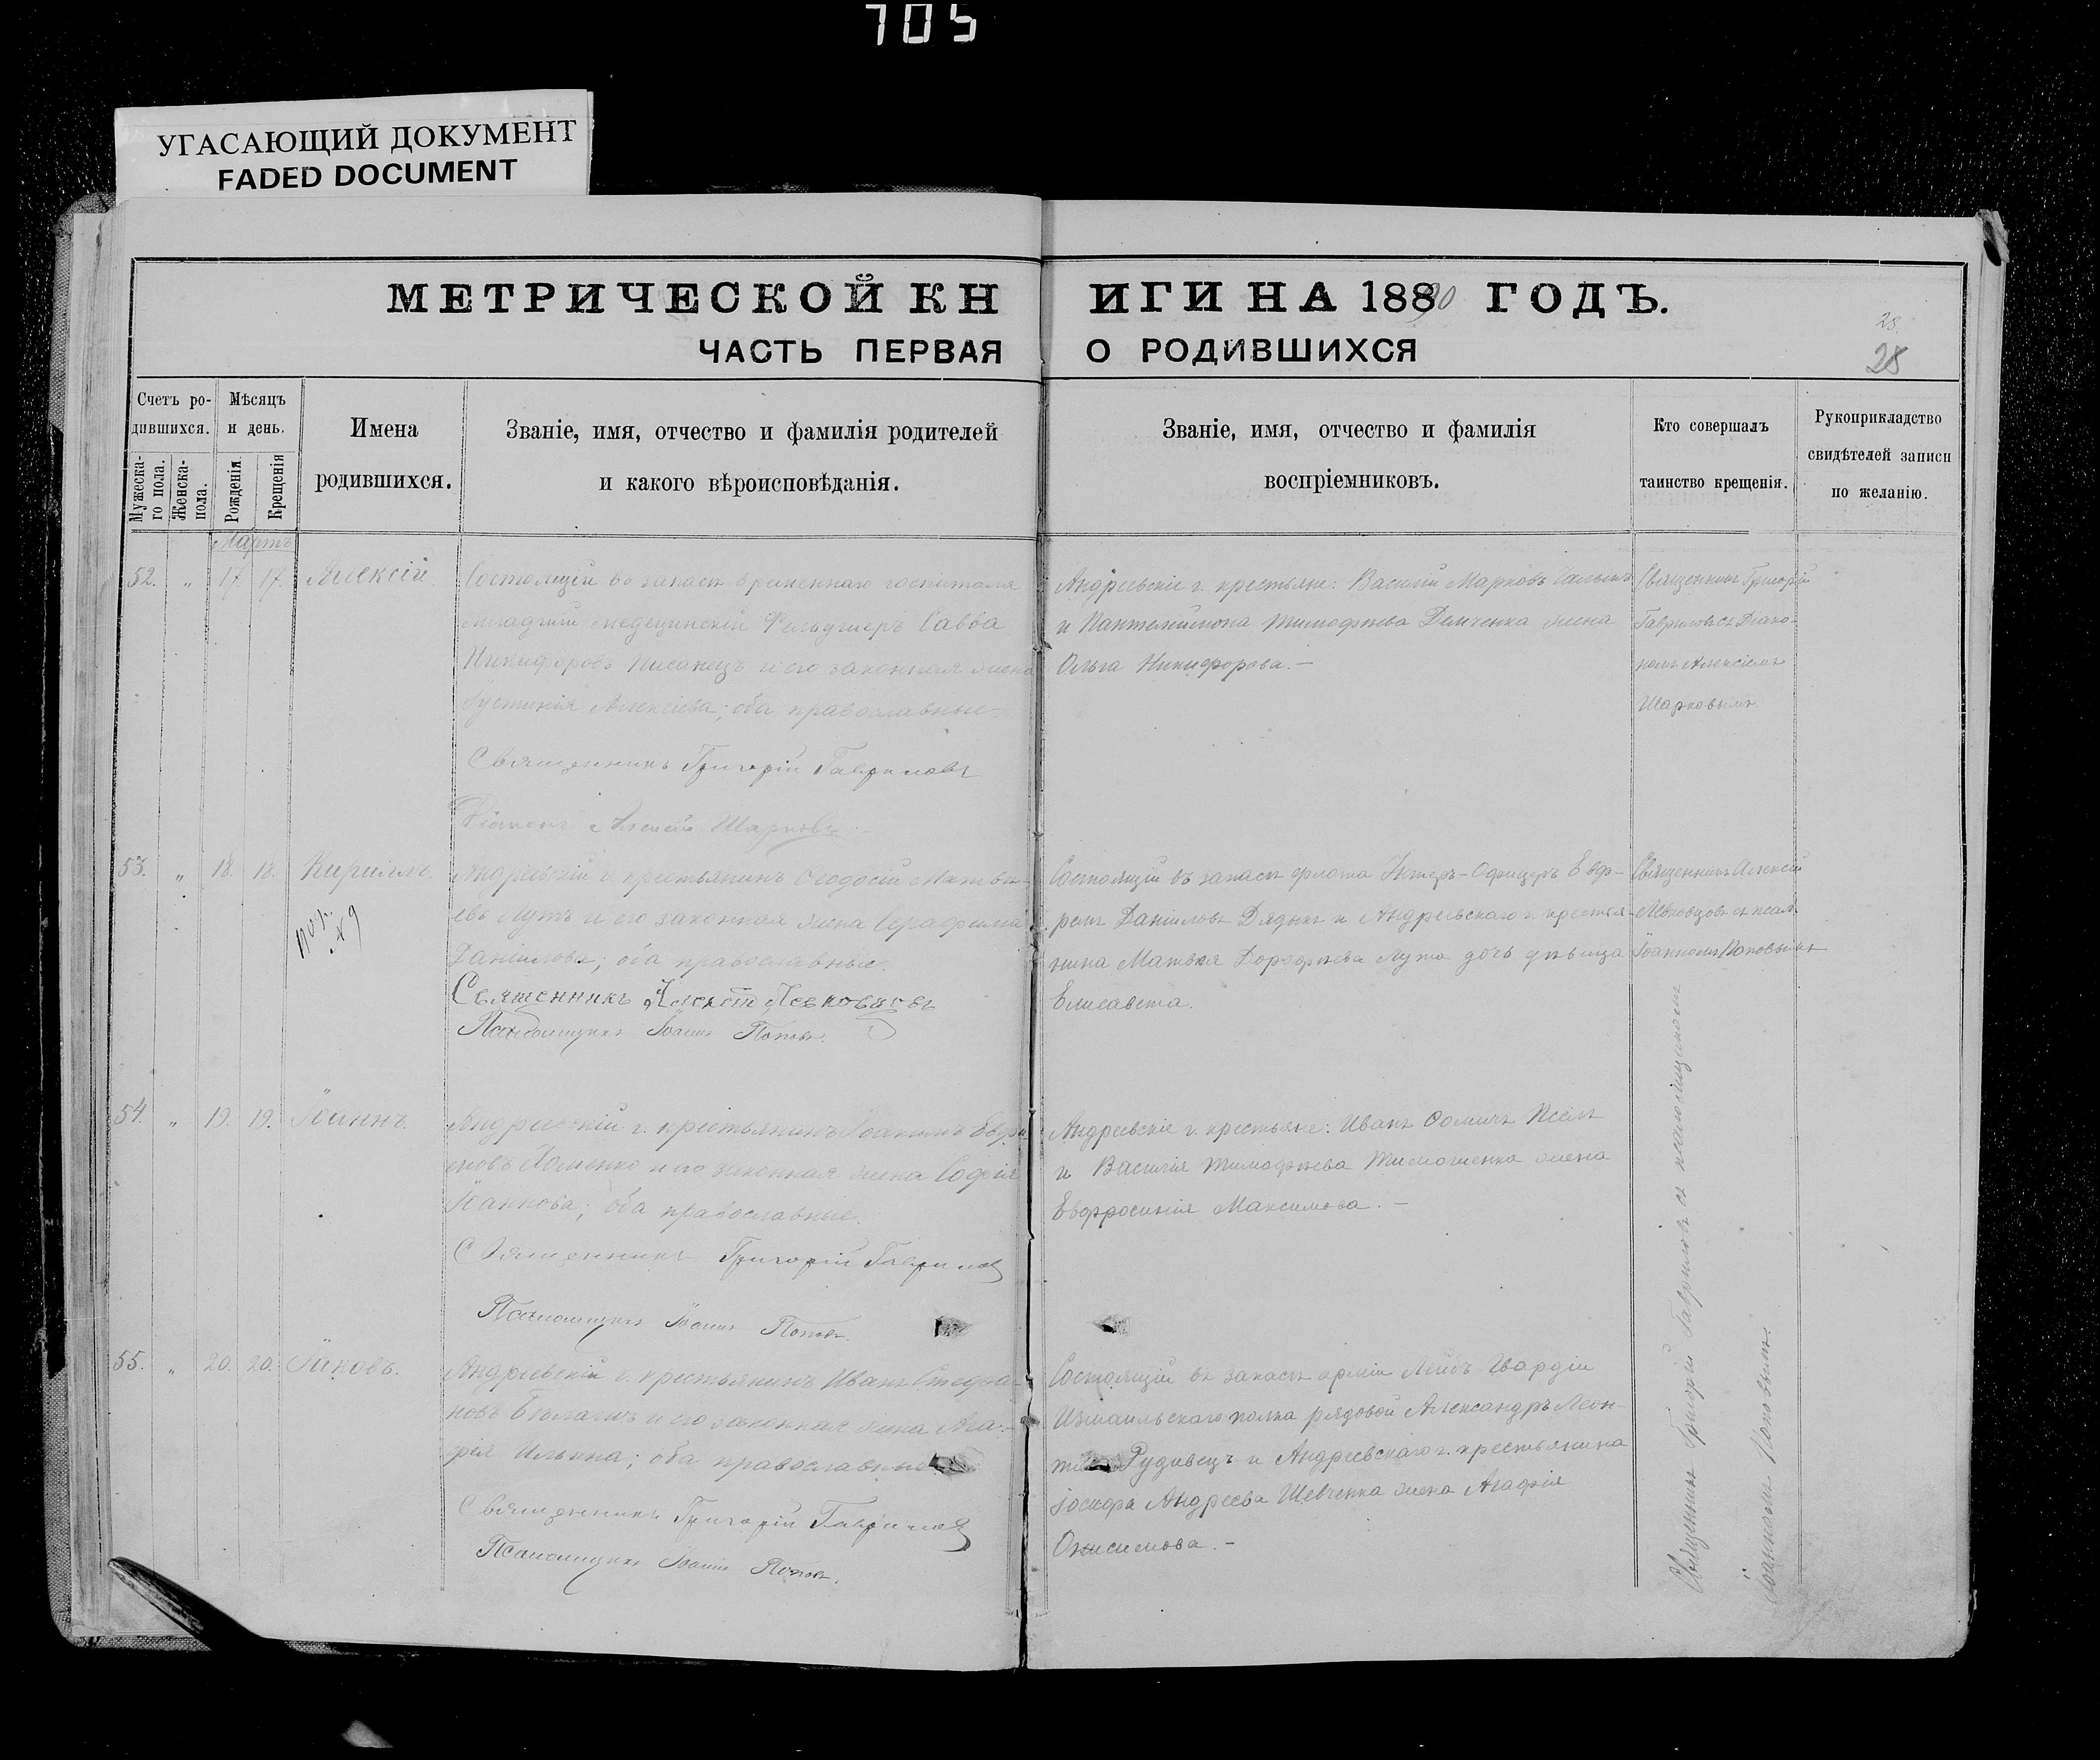 705
УГАСАЮЩИЙ ДОКУМЕНТ
FADED DOCUMENT
МЕТРИЧЕСКОЙ КН ИГИ НА 18890 ГОДЪ.
ЧАСТЬ ПЕРВАЯ О РОДИВШИХСЯ
28.
28
Счетъ ро-
дившихся.
Мужеска-
го пола.
Женска-
пола.
Мѣсяцъ
и день.
Рожденія.
Крещенія
Имена
родившихся.
Званіе, имя, отчество и фамилія родителей
и какого вѣроисповѣданія.
Званіе, имя, отчество и фамилія
воспріемниковъ.
Кто совершалъ
таинство крещенія.
Рукоприкладство
свидѣтелей записи
по желанію.
Мартъ
52. " 17. 17. Алексій
Состоящій въ запасѣ временнаго госпиталя
младшій медецинскій Фельдшеръ Савва
Никифоровъ Писанецъ и его законная жена
Іустинія Алексіева; оба православные
Священникъ Григорій Гавриловъ
Діаконъ Алексій Шарковъ
Андреевскіе г. крестьяне: Василій Марковъ
и Пантелиимона Тимофѣева Демченка жена
Ольга Никифорова. —
Священникъ Григорій
Гавриловъ съ Діако-
номъ Алексіемъ
Шарковымъ
53. " 18. 18. Кирилъ.
№ 9
Андреевскій г. крестьянинъ Ѳеодосій Матвѣ-
евъ Лутъ и его законная жена Серафима
Даніилова; оба православные.
Священникъ Алексій Левковцовъ
Псаломщикъ Іоаннъ Поповъ.
Состоящій въ запасѣ флота Унтеръ-Офицеръ Евф-
ремъ Даніиловъ Дядыкъ и Андреевскаго г. крестья-
нина Матвѣя Дорофѣева Лута дочь дѣвица
Елисавета.
Священникъ Алексій
Левковцовъ съ псал.
Іоанномъ Поповымъ
54. " 19. 19. Іоаннъ.
Андреевскій г. крестьянинъ Іоакимъ
и его законная жена Софія
Іоаннова; оба православные.
Священникъ Григорій Гавриловъ
Псаломщикъ Іоаннъ Поповъ.
Андреевскіе г. крестьяне: Иванъ Ѳомичъ
и Василія Тимофѣева Тимошенка жена
Евфросинія Максимова. —
55. " 20. 20. Іаковъ.
Андреевскій г. крестьянинъ Иванъ Стефа-
новъ и его законная жена Ма-
рія Ильина; оба православные
Священникъ Григорій Гавриловъ
Псаломщикъ Іоаннъ Поповъ.
Состоящій въ запасѣ арміи Лейбъ-Гвардіи
Измаильскаго полка рядовой Александръ Леон-
Рудавецъ и Андреевскаго г. крестьянина
Андреева Шевченка жена Агафія
Онисимова. —
Священникъ Григорій Гавриловъ съ псаломщикомъ
Іоанномъ Поповымъ.